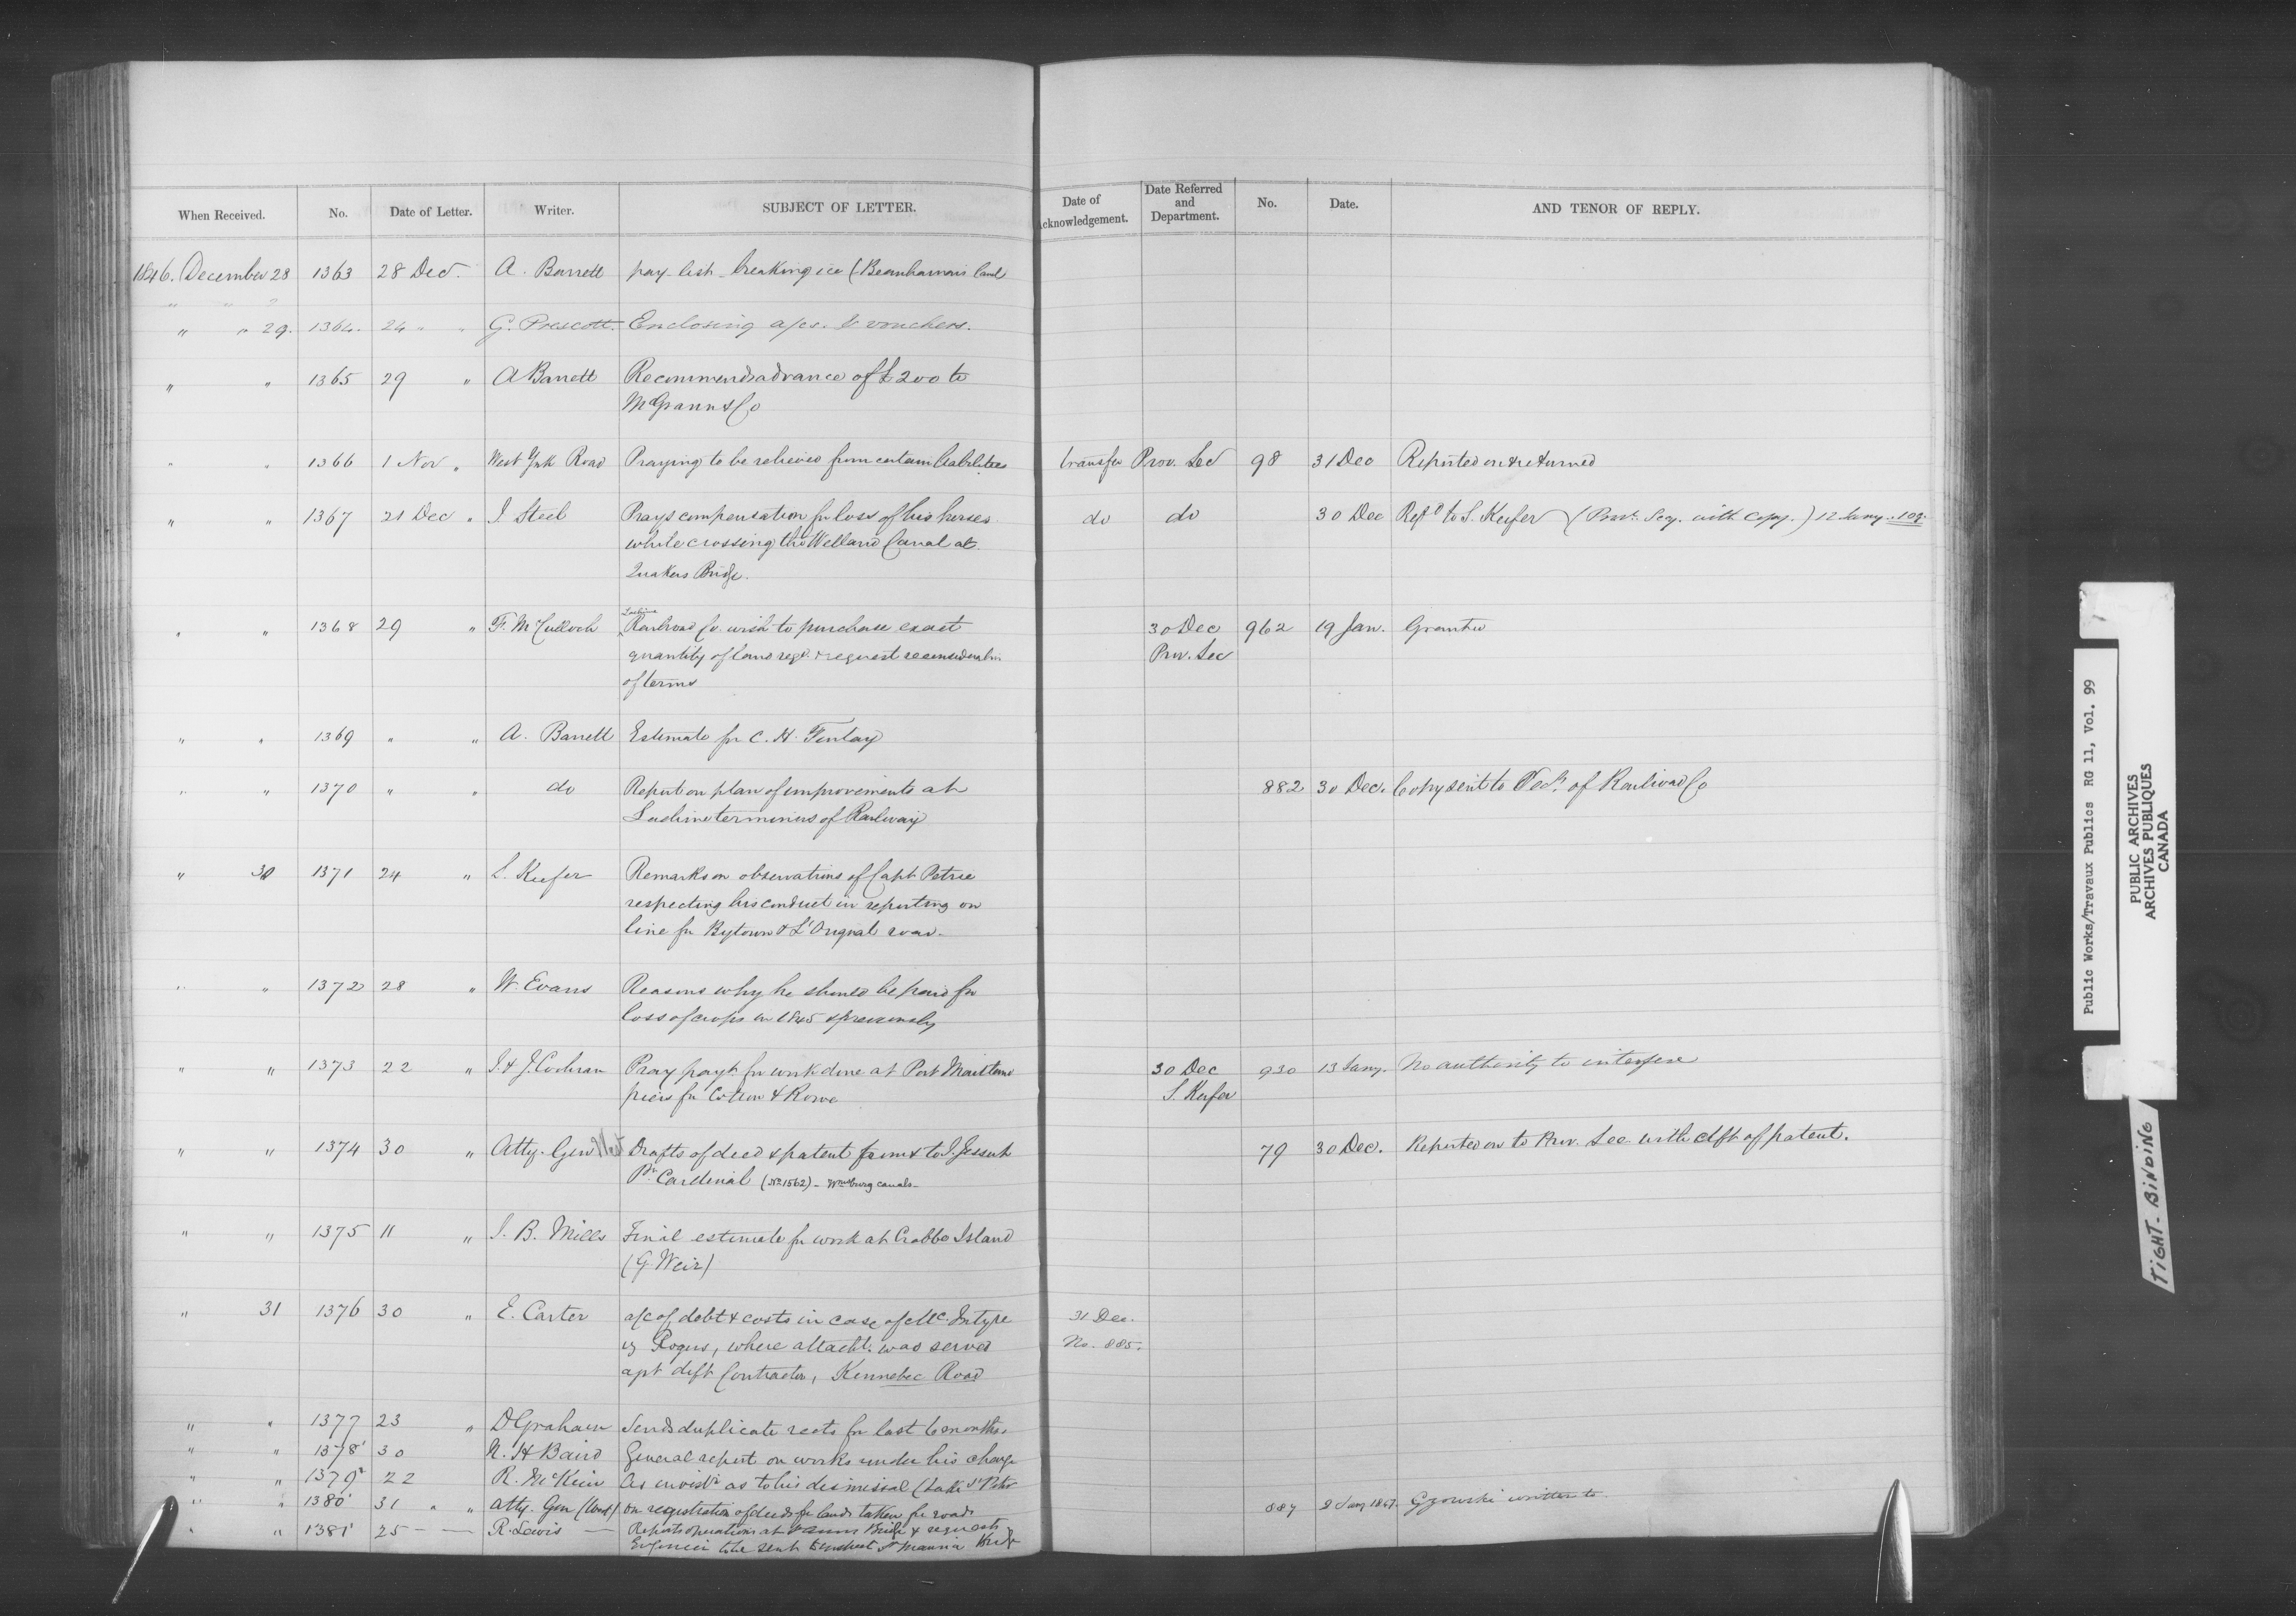 When Received. No. Date of Letter. Writer. SUBJECT OF LETTER. Date of Acknowledgement. Date Referred and Department. No. Date. AND TENOR OF REPLY.
1846. December 28 1363 28 Dec. A. Barrett pay list breaking ice (Beauharnois Canal
" " 29. 1364. 24 " " G. Prescott. Enclosing a/cs. & vouchers.
" " 1365 29 " A Barrett Recommends advance of £200 to
McGrann & Co
" " 1366 1 Nov " West York Road Praying to be relieved from certain liabilities transfer Prov. Sec 98 31 Dec Reported on & returned
" " 1367 21 Dec " J. Steel Prays compensation for loss of his horses do do 30 Dec Refd to S. Keefer (Prov. Secy. with Copy.) 12 Jany. 109.
while crossing the Welland Canal at
Quakers Bridge.
" " 1368 29 " F. McCulloch Lachine Railroad Co. wish to purchase exact 30 Dec 962 19 Jan. Granted
quantity of land reqd. & request reconsideration Prov. Sec
of terms
" " 1369 " " A. Barrett Estimate for C. H. Finlay
" " 1370 " " do Report on plan of improvements at 882 30 Dec. Copy sent to Secy. of Railroad Co
Lachine terminus of Railway
" 30 1371 24 " S. Keefer Remarks on observations of Capt Petrie
respecting his conduct in reporting on
line for Bytown & L'Orignal road.
" " 1372 28 " W. Evans Reasons why he should be paid for
loss of crops in 1845 & previously
" " 1373 22 " J. & J. Cochran Pray payt. for work done at Port Maitland 30 Dec 930 13 Jany. No authority to interfere
piers for Cotton & Rowe S. Keefer
" " 1374 30 " Atty. Genl West Drafts of deed & patent from & to J. Jessup 79 30 Dec. Reported on to Prov. Sec. with dft. of patent.
Pt. Cardinal (No. 1562) - Wmsburg canals -
" " 1375 11 " J. B. Mills Final estimate for work at Crabbe Island
(G Weir)
" 31 1376 30 " E. Carter a/c of debt & costs in case of McIntyre 31 Dec.
vs Rogers, where attacht. was served No. 885.
agst deft Contractor, Kennebec Road
" " 1377 23 " D Graham Sends duplicate rects for last 6 months.
" " 1378 30 N. H Baird General report on works under his charge
" " 1379 22 R. McKeir as to his dismissal (Lake St Peter
" " 1380 31 " " Atty. Gen on registration of deeds for lands taken for roads 887 2 Jany 1847. Gzowski written to
" " 1381 25 — — R. Lewis — Reports operations at Bridge & requests
Engineer to be sent to inspect St Maurice Bridge
Public Works/Travaux Publics RG 11, Vol. 99
PUBLIC ARCHIVES
ARCHIVES PUBLIQUES
CANADA
TIGHT-BINDING